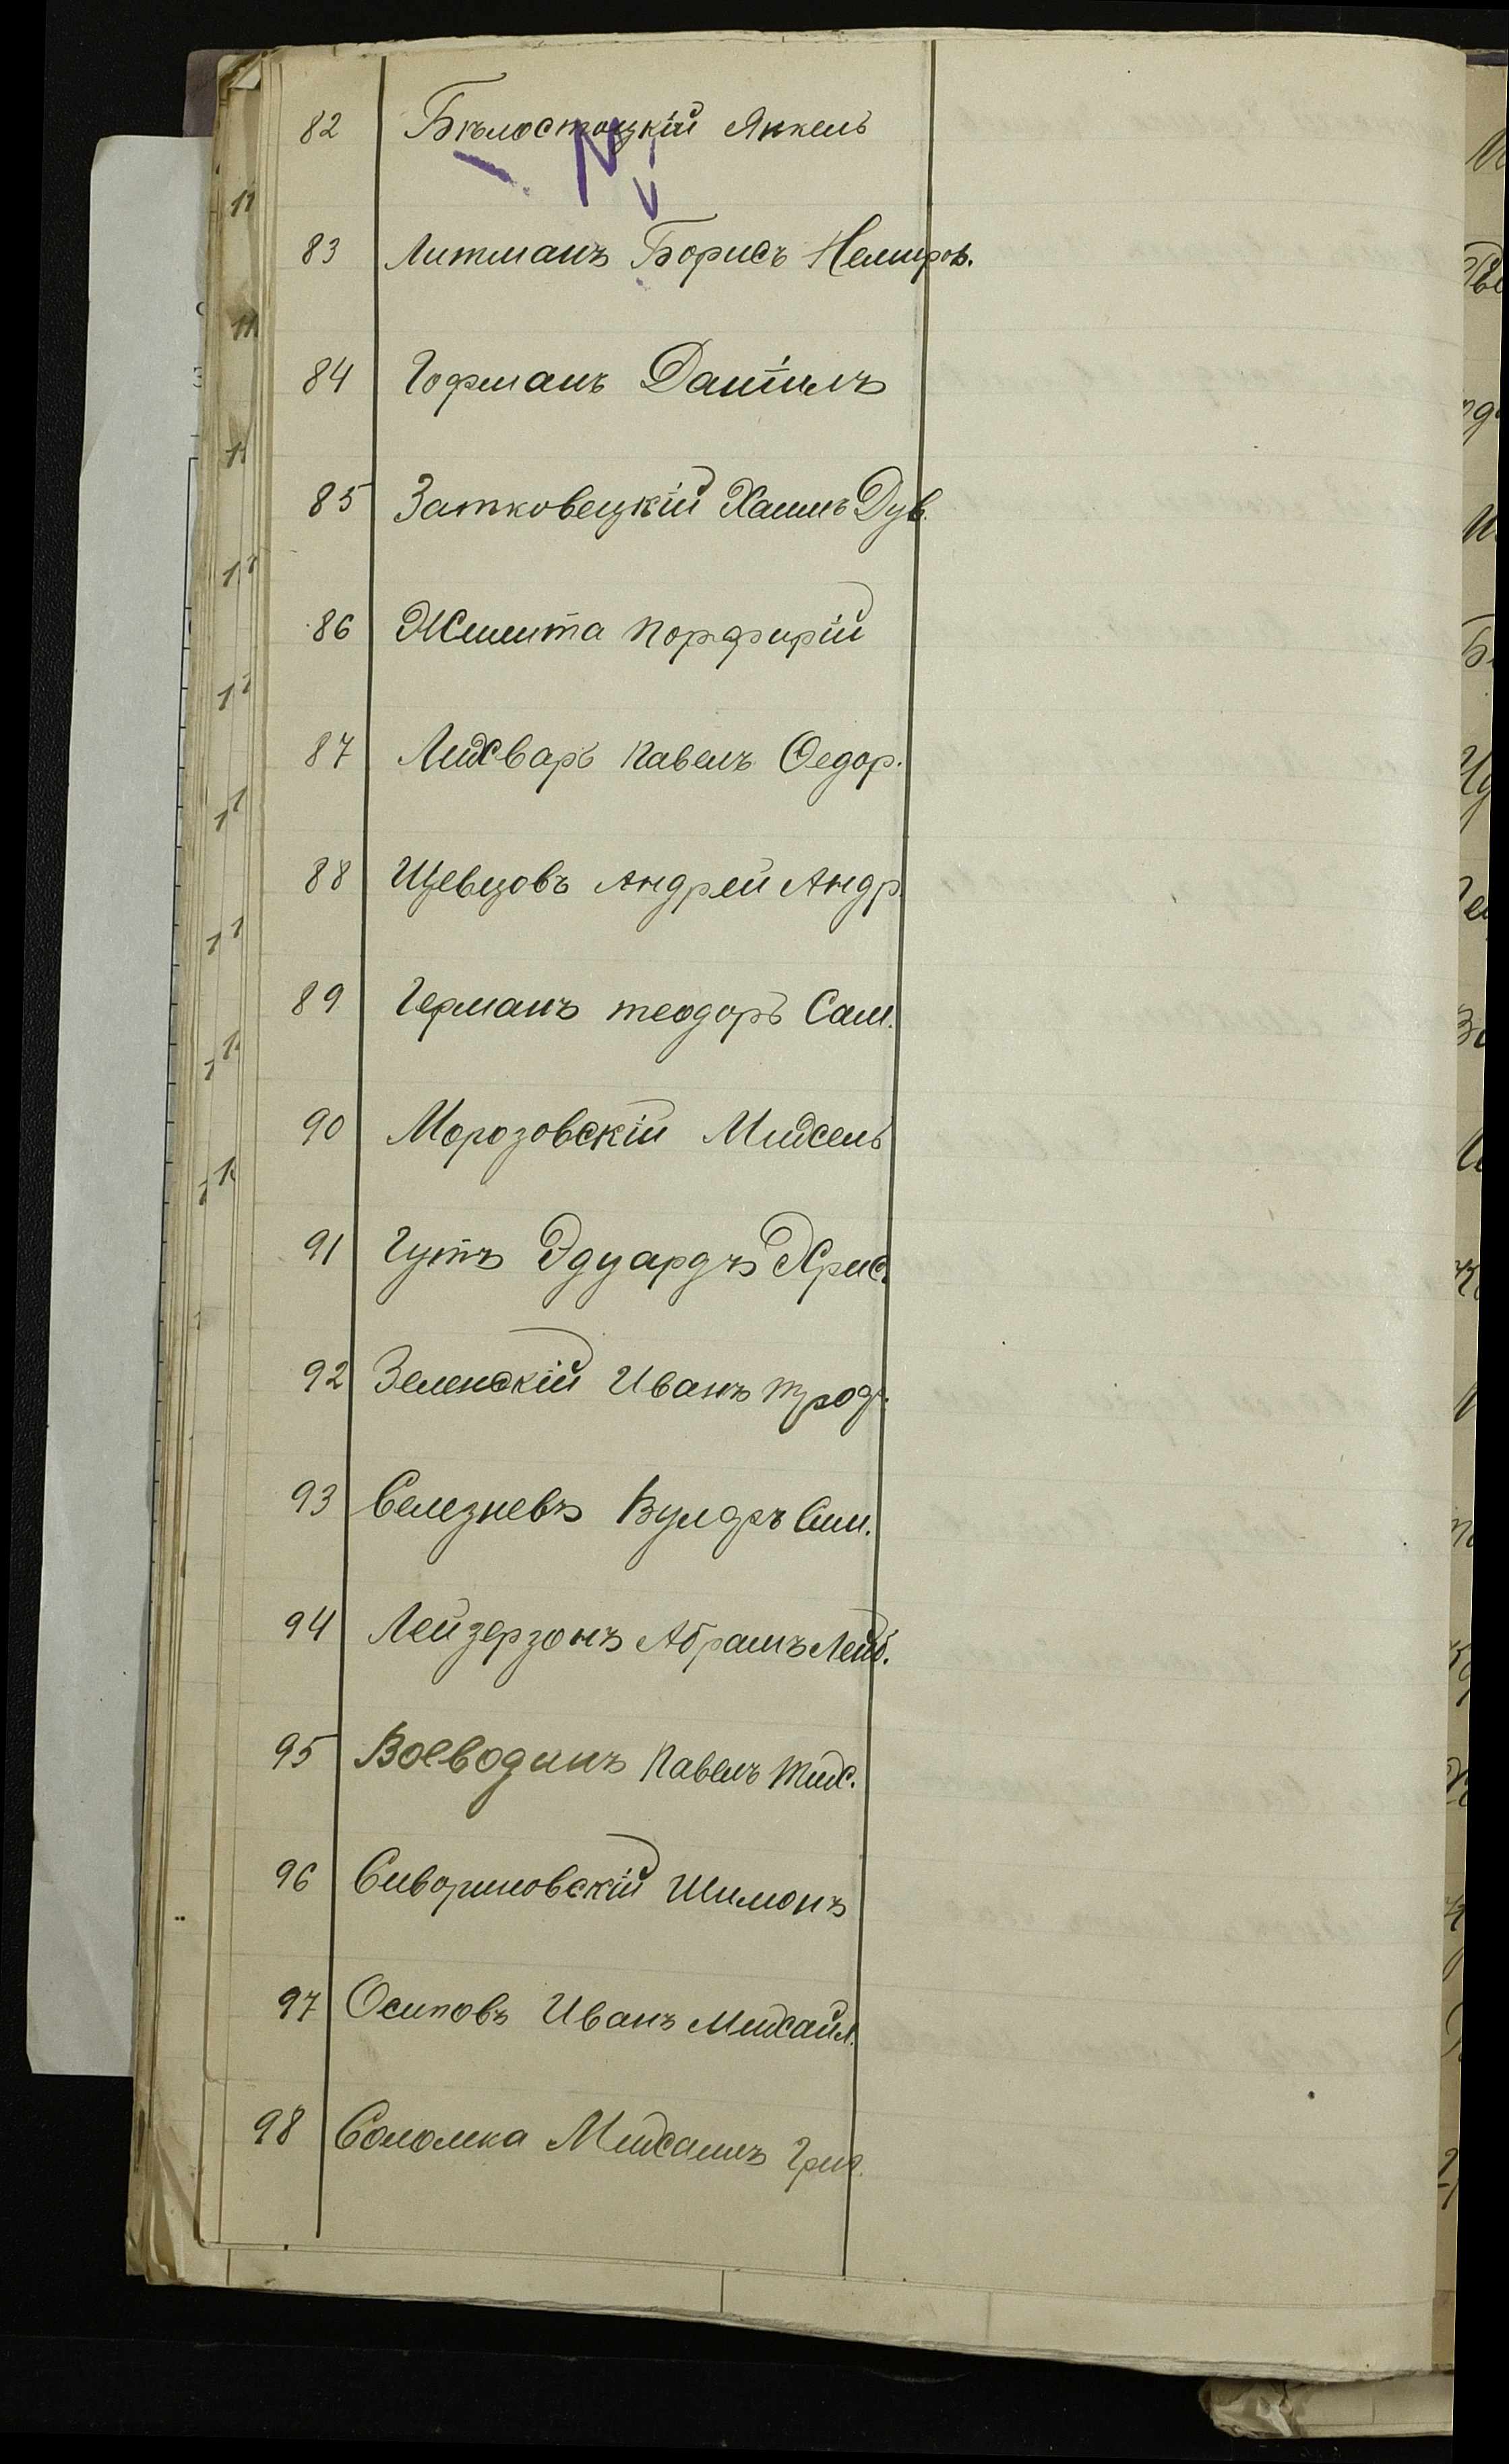 82 Бѣлостоцкій Янкель
83 Литманъ Борисъ Немиров.
84 Гофманъ Даніилъ
85 Затковецкій Хаимъ Дув.
86 Порфирій
87 Лихварь Павелъ Ѳедор.
88 Щевцовъ Андрей Андр.
89 Германъ Теодоръ Сам.
90 Морозовскій Михель
91 Гутъ Эдуардъ Хрис.
92 Зеленскій Иванъ Прод.
93 Селезневъ Вульфъ Сим.
94 Лейзерзонъ Абрамъ Лейб.
95 Воеводинъ Павелъ Тих.
96 Сивориновскій Шимонъ
97 Осиповъ Иванъ Михайл.
98 Соломка Михаилъ Григ.